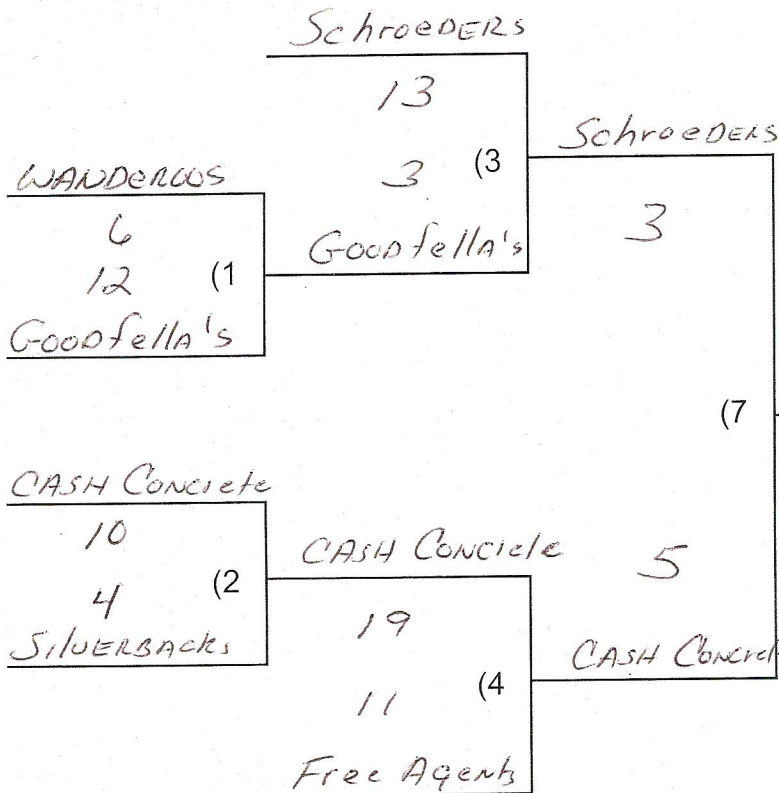 SchroeDERS
13
3 (3
GOODfellA's
SchroeDERS
3
WANDEROOS
6
12 (1
GOODfellA's
(7
CASH Concrete
10
4 (2
SilvERBACKs
CASH Concrete
19
11 (4
Free Agents
5
CASH Concret